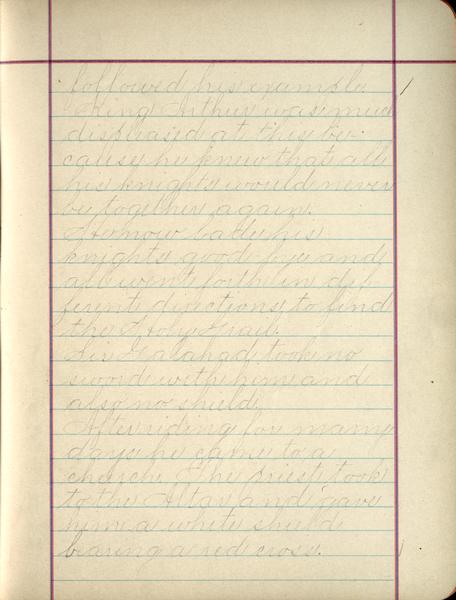 followed his example
King Arthur was much
displeased at this be-
cause he knew that all
his knights would never
be together again.
He now bade his
knights good-bye and
all went forth in dif-
ferent directions to find
the Holy Grail.
Sir Galahad took no
sword with him and
also no shield.
After riding for many
days he came to a
church. The priest took
to the Altar and gave
him a white shield
bearing a red cross.